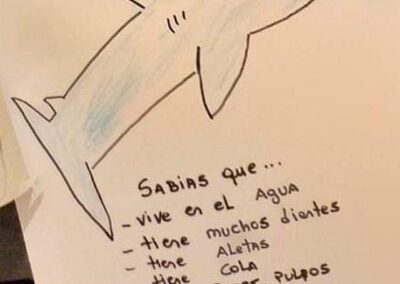 SABIAS que...
- VIVE EN EL AGUA
- tiene muchos dientes
- tiene ALETAS
- tiene COLA
tiene PULPOS